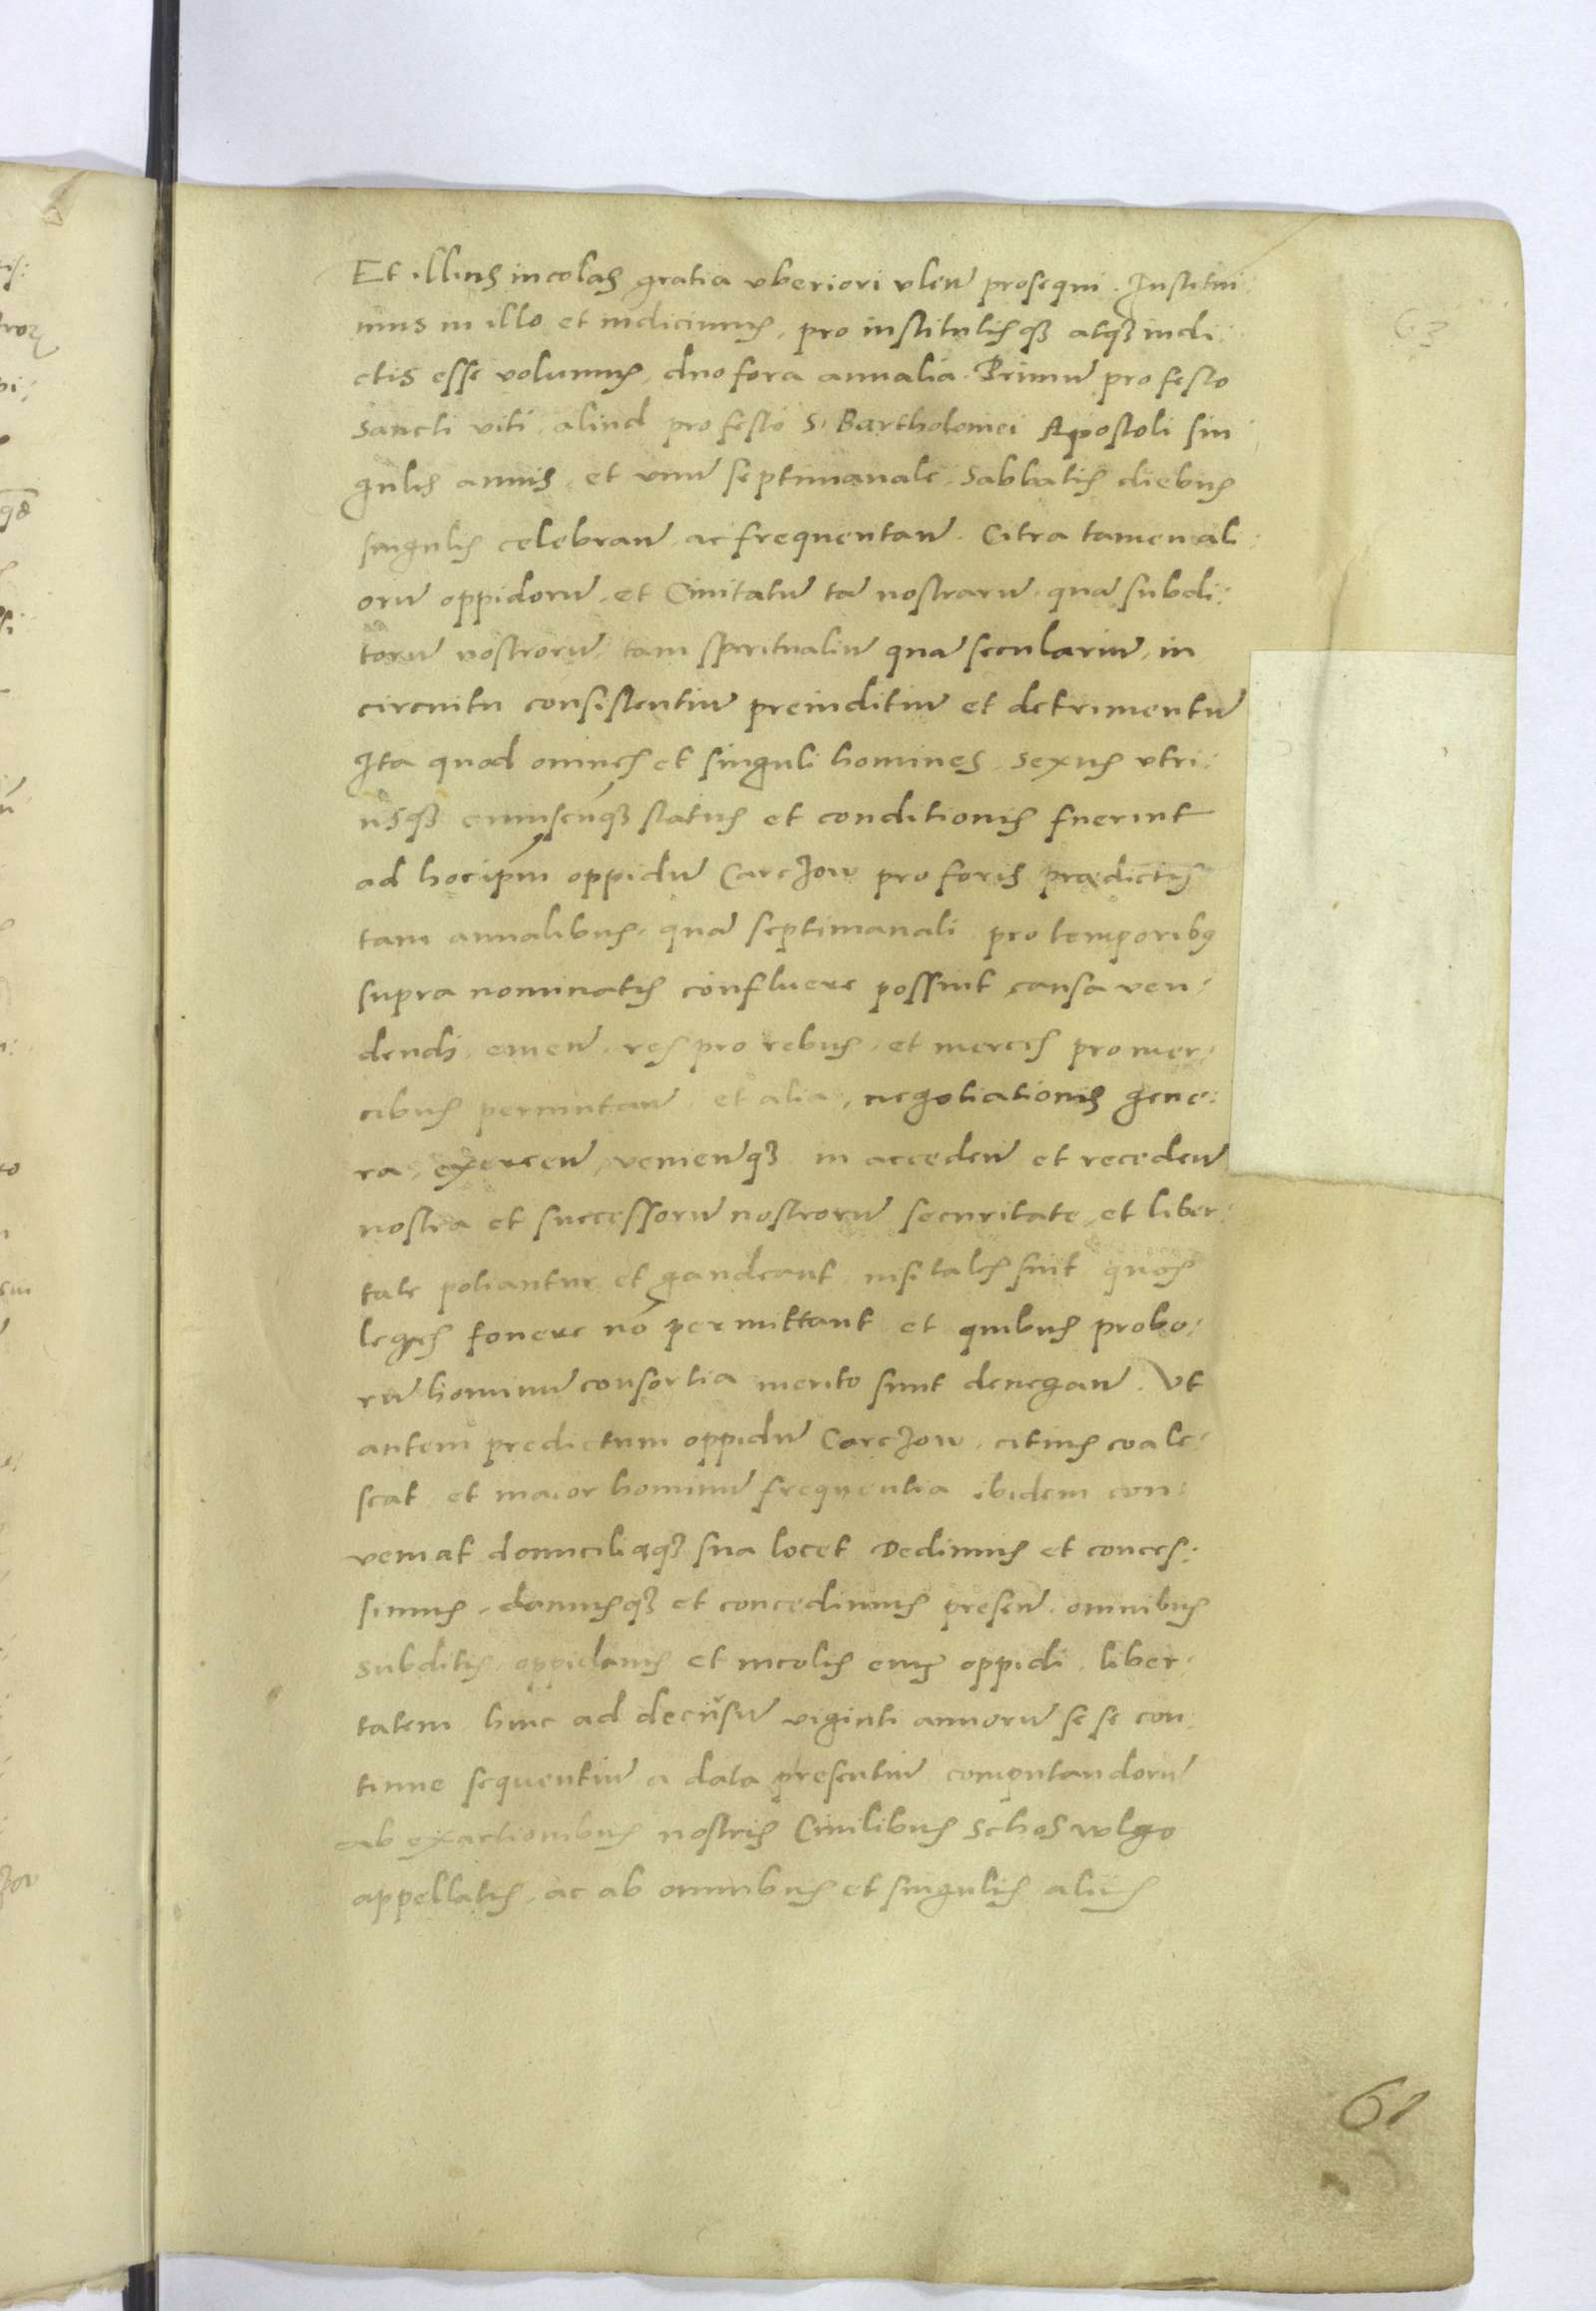 Et illius incolas gratia uberiori volen̄ prosequi. Institui:
mus in illo et indicimus, pro institutisq₃ atq₃ indi:
ctis esse volumus, duo fora annalia. Primū pro festo
Sancti viti, aliud pro festo S. Bartholomei Apostoli sin:
gulis annis, et unū septimanale, Sabbatis diebus
singulis celebran̄ ac frequentan̄. Citra tamen ali:
orū oppidorū, et Civitatū tā nostrarū quā subdi:
torū nostrorū, tam spiritualiū quā seculariū, in
circuitu consistentiū preiuditiū et detrimentū
Ita quod omnes et singuli homines, sexus utri:
usq₃ cuiuscūq₃ status et conditionis fuerint
ad hoc ipm̄ oppidū Carczow pro foris prædictis
tam annalibus, quā septimanali pro temporibꝰ
supra nominatis confluere possint causa ven:
dendi, emen̄, res pro rebus, et merces pro mer:
cibus permutan̄ et alia, negotiationis gene:
ra, exercen̄, venien̄q₃ in acceden̄ et receden̄
nostra et successorū nostrorū securitate, et liber:
tate potiantur et gaudeant, nisi tales sint quos
leges fovere nō permittant et quibus probo:
rū hominū consortia merito sunt denegan̄. Ut
autem predictum oppidū Carczow, citius coale:
scat, et maior hominū frequentia ibidem con:
veniat domiciliaq₃ sua locet Dedimus et conces:
simus, damusq₃ et concedimus presen̄ omnibus
subditis, oppidanis et incolis eius oppidi, liber:
tatem hinc ad decūrsū viginti annorū se se con:
tinue sequentiū a data presentiū computandorū
ab exactionibus nostris Civilibus Schos vulgo
appellatis, ac ab omnibus et singulis aliis
63
61